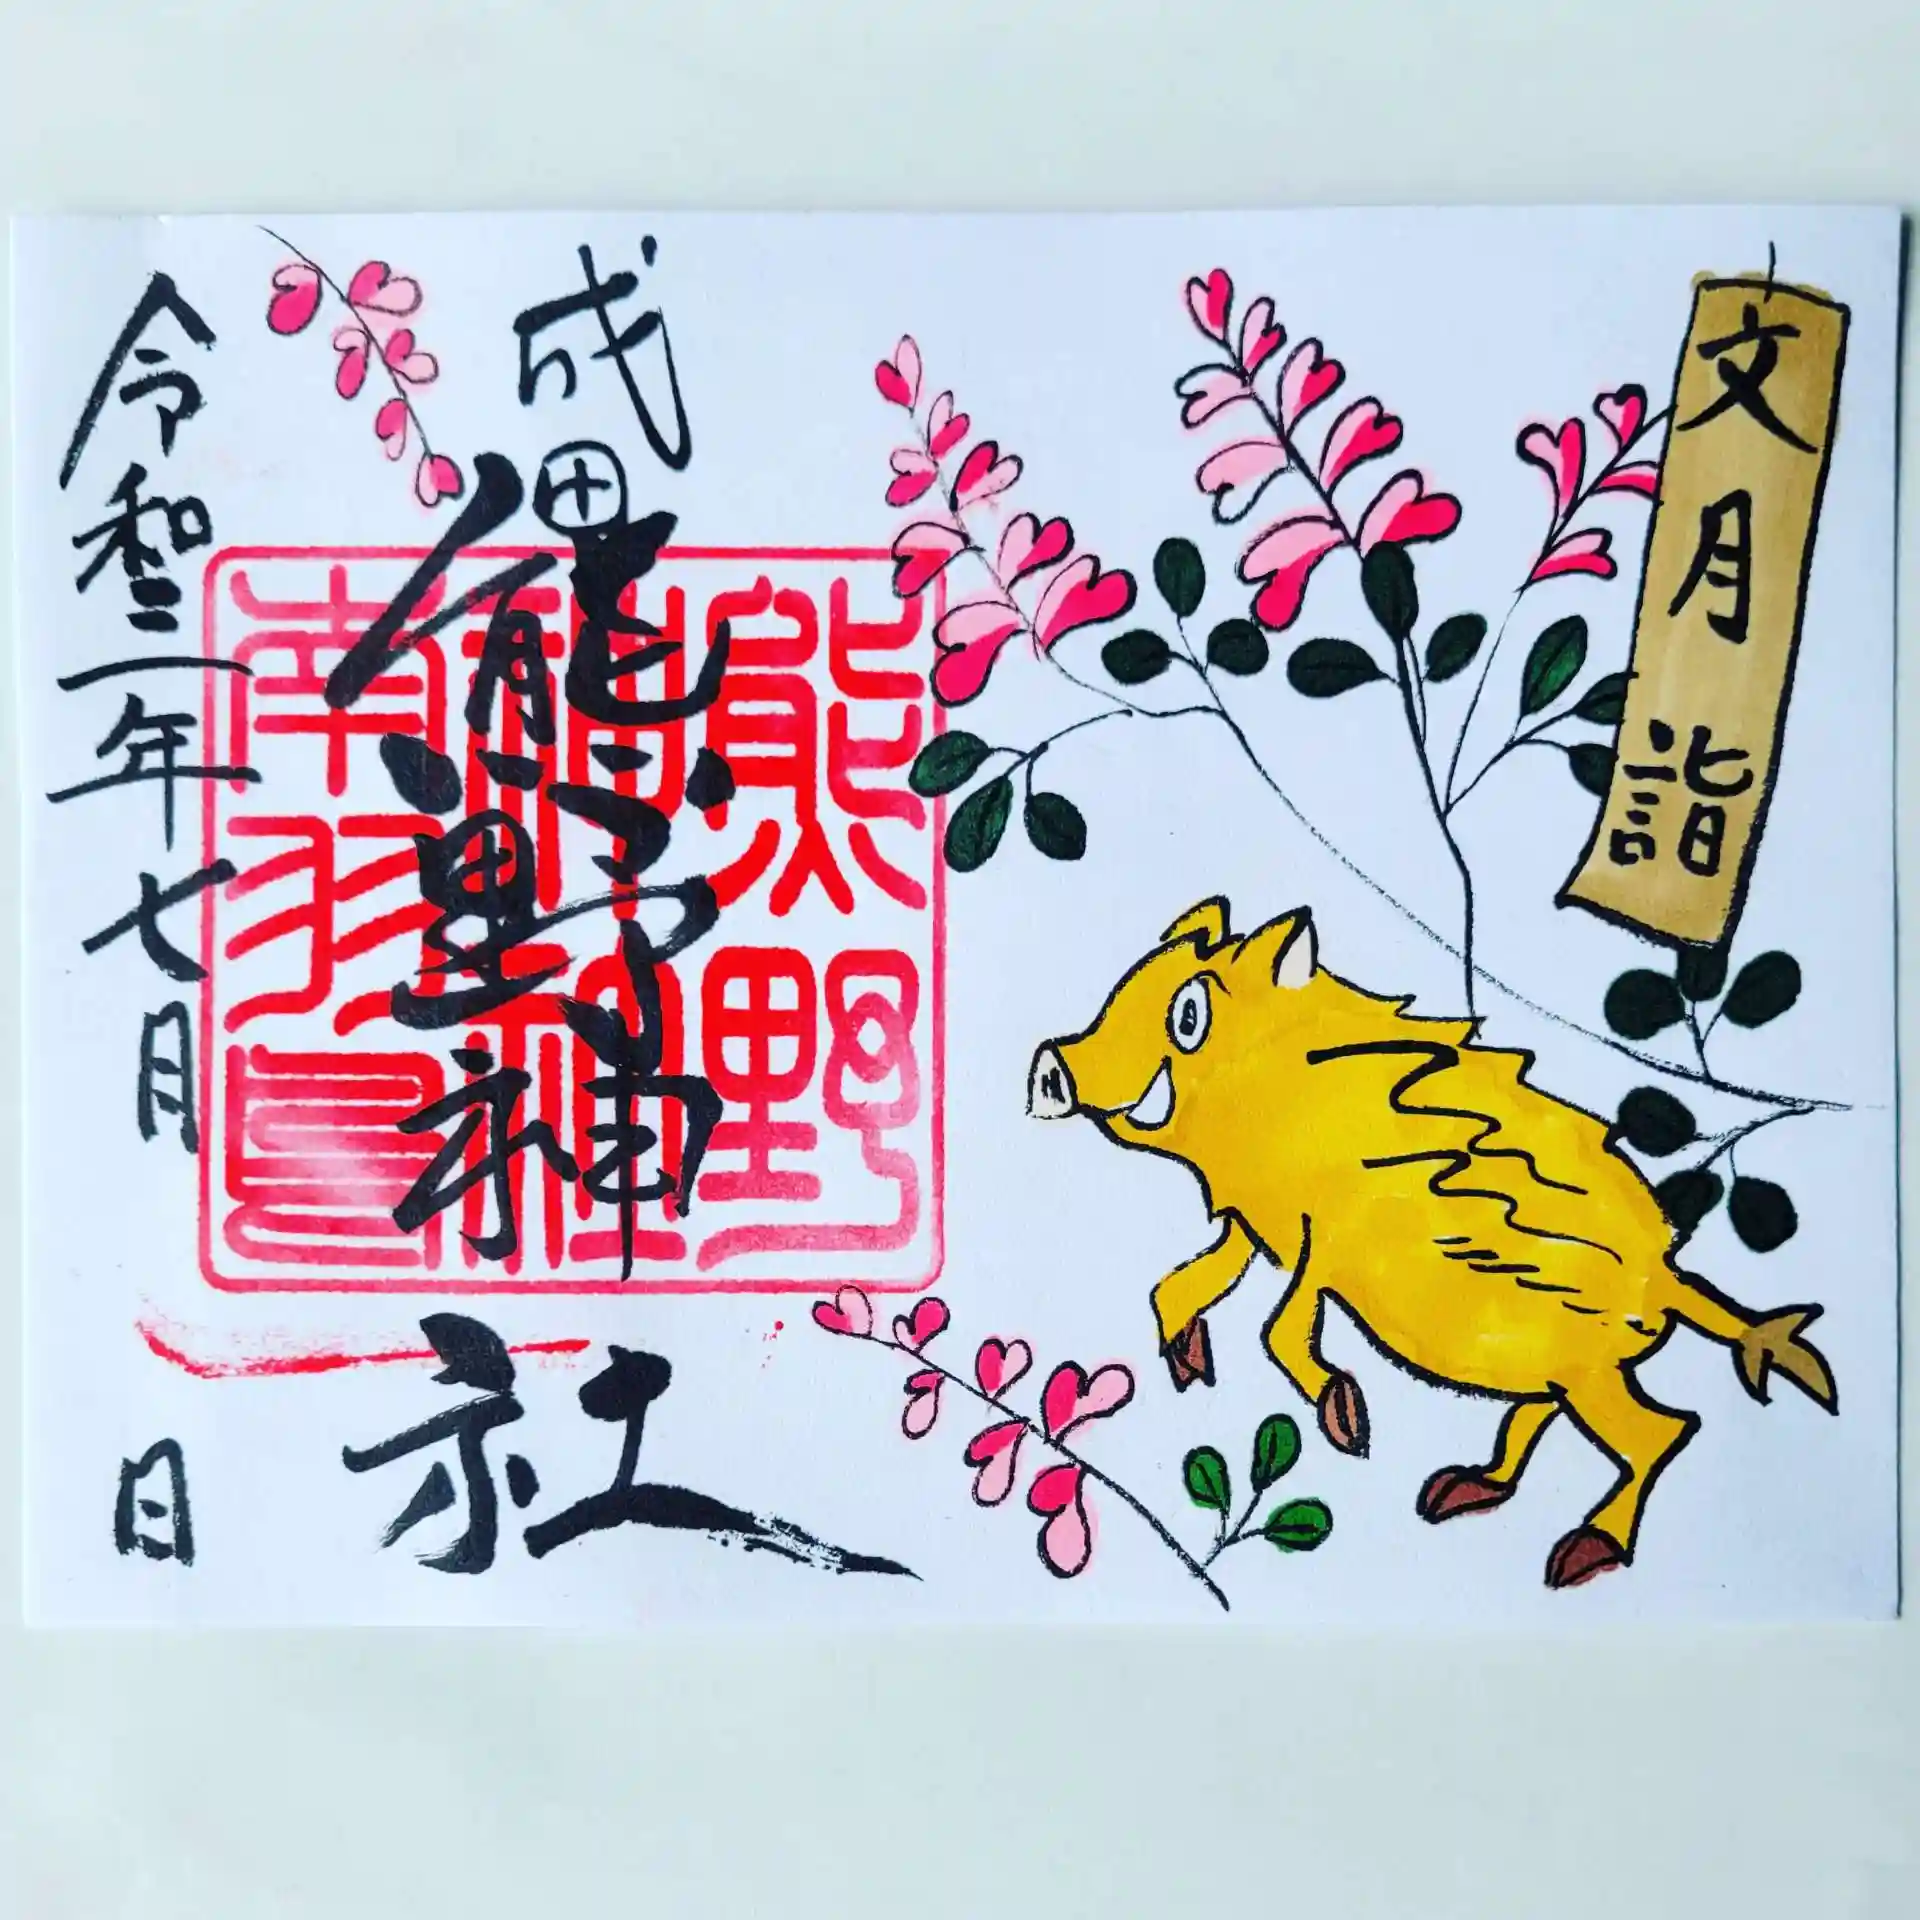 文月詣
成田
熊野神社
令和二年七月 日
熊野
南羽鳥